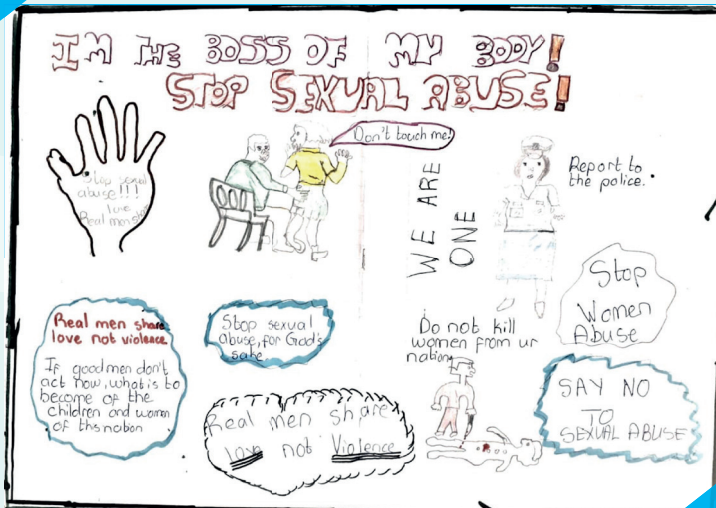 I'M THE BOSS OF MY BODY!
STOP SEXUAL ABUSE!
Stop sexual
abuse!!!
love
Real men share
Don't touch me!
WE ARE
ONE
Report to
the police.
Stop
Women
Abuse
Real men share
love not violence
If good men don't
act now, what is to
become of the
children and women
of this nation
Stop sexual
abuse, for God's
sake
Do not kill
women from ur
nation
Real men share
love not Violence
SAY NO
TO
SEXUAL ABUSE